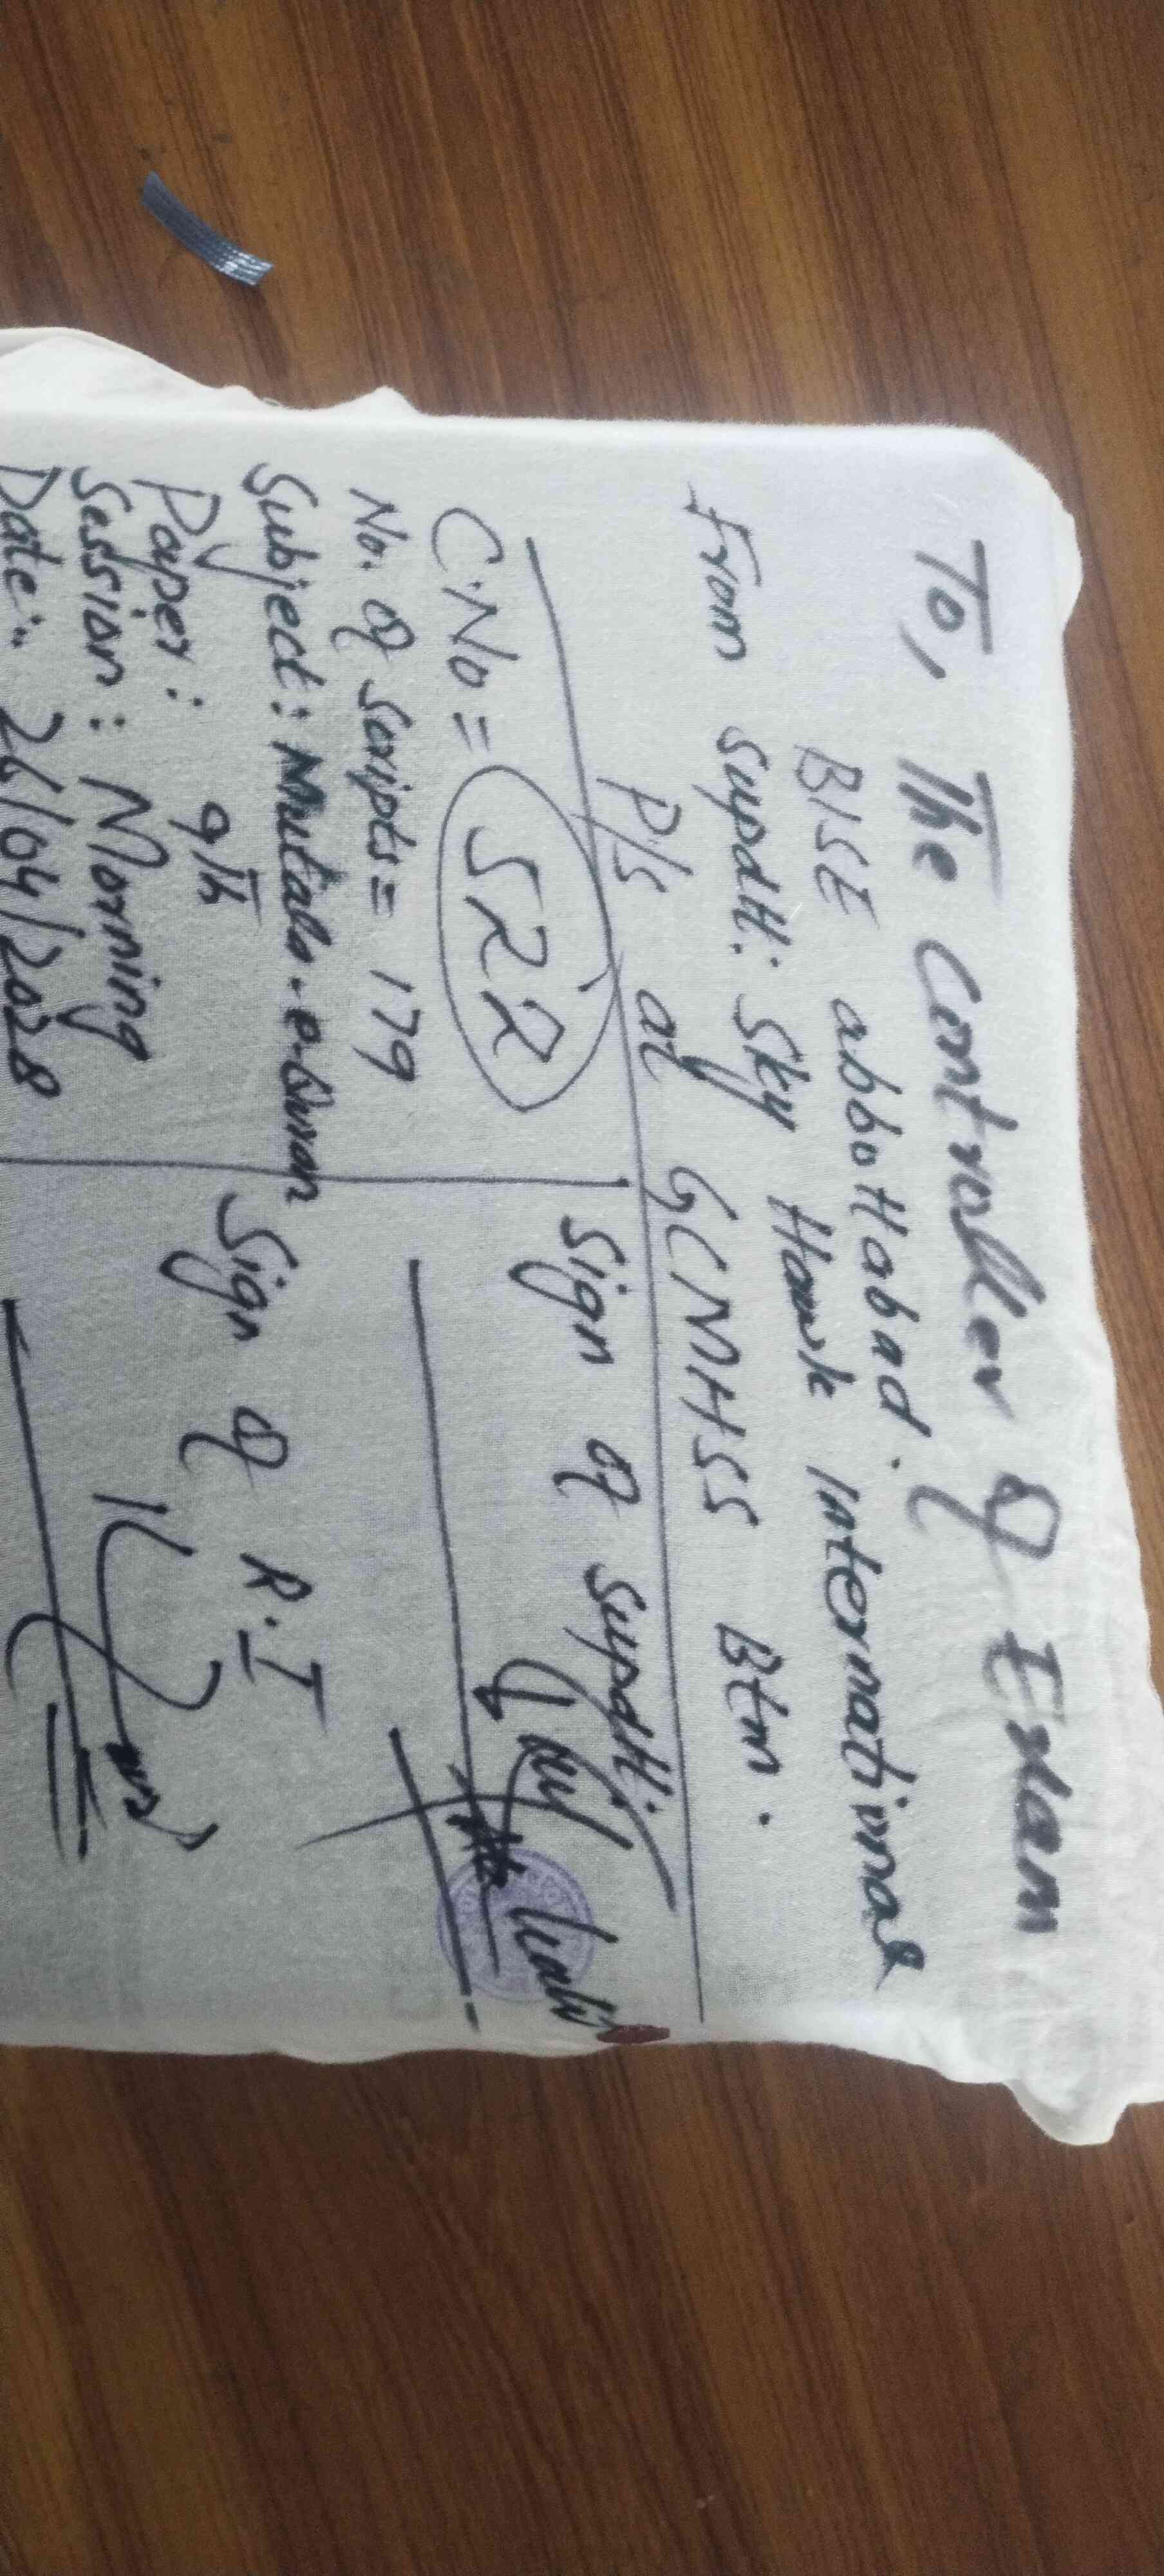 To, The Controller of Exam
BISE abbottabad.
From supdtt: Sky Hawk International
P/s at GCMHSS Btm.
C.No = 522
No. of scripts = 179
Subject: Mutala-e-Quran
Paper: 9th
Session: Morning
Date:- 26/04/2028
Sign of supdtt:
Sign of R.I